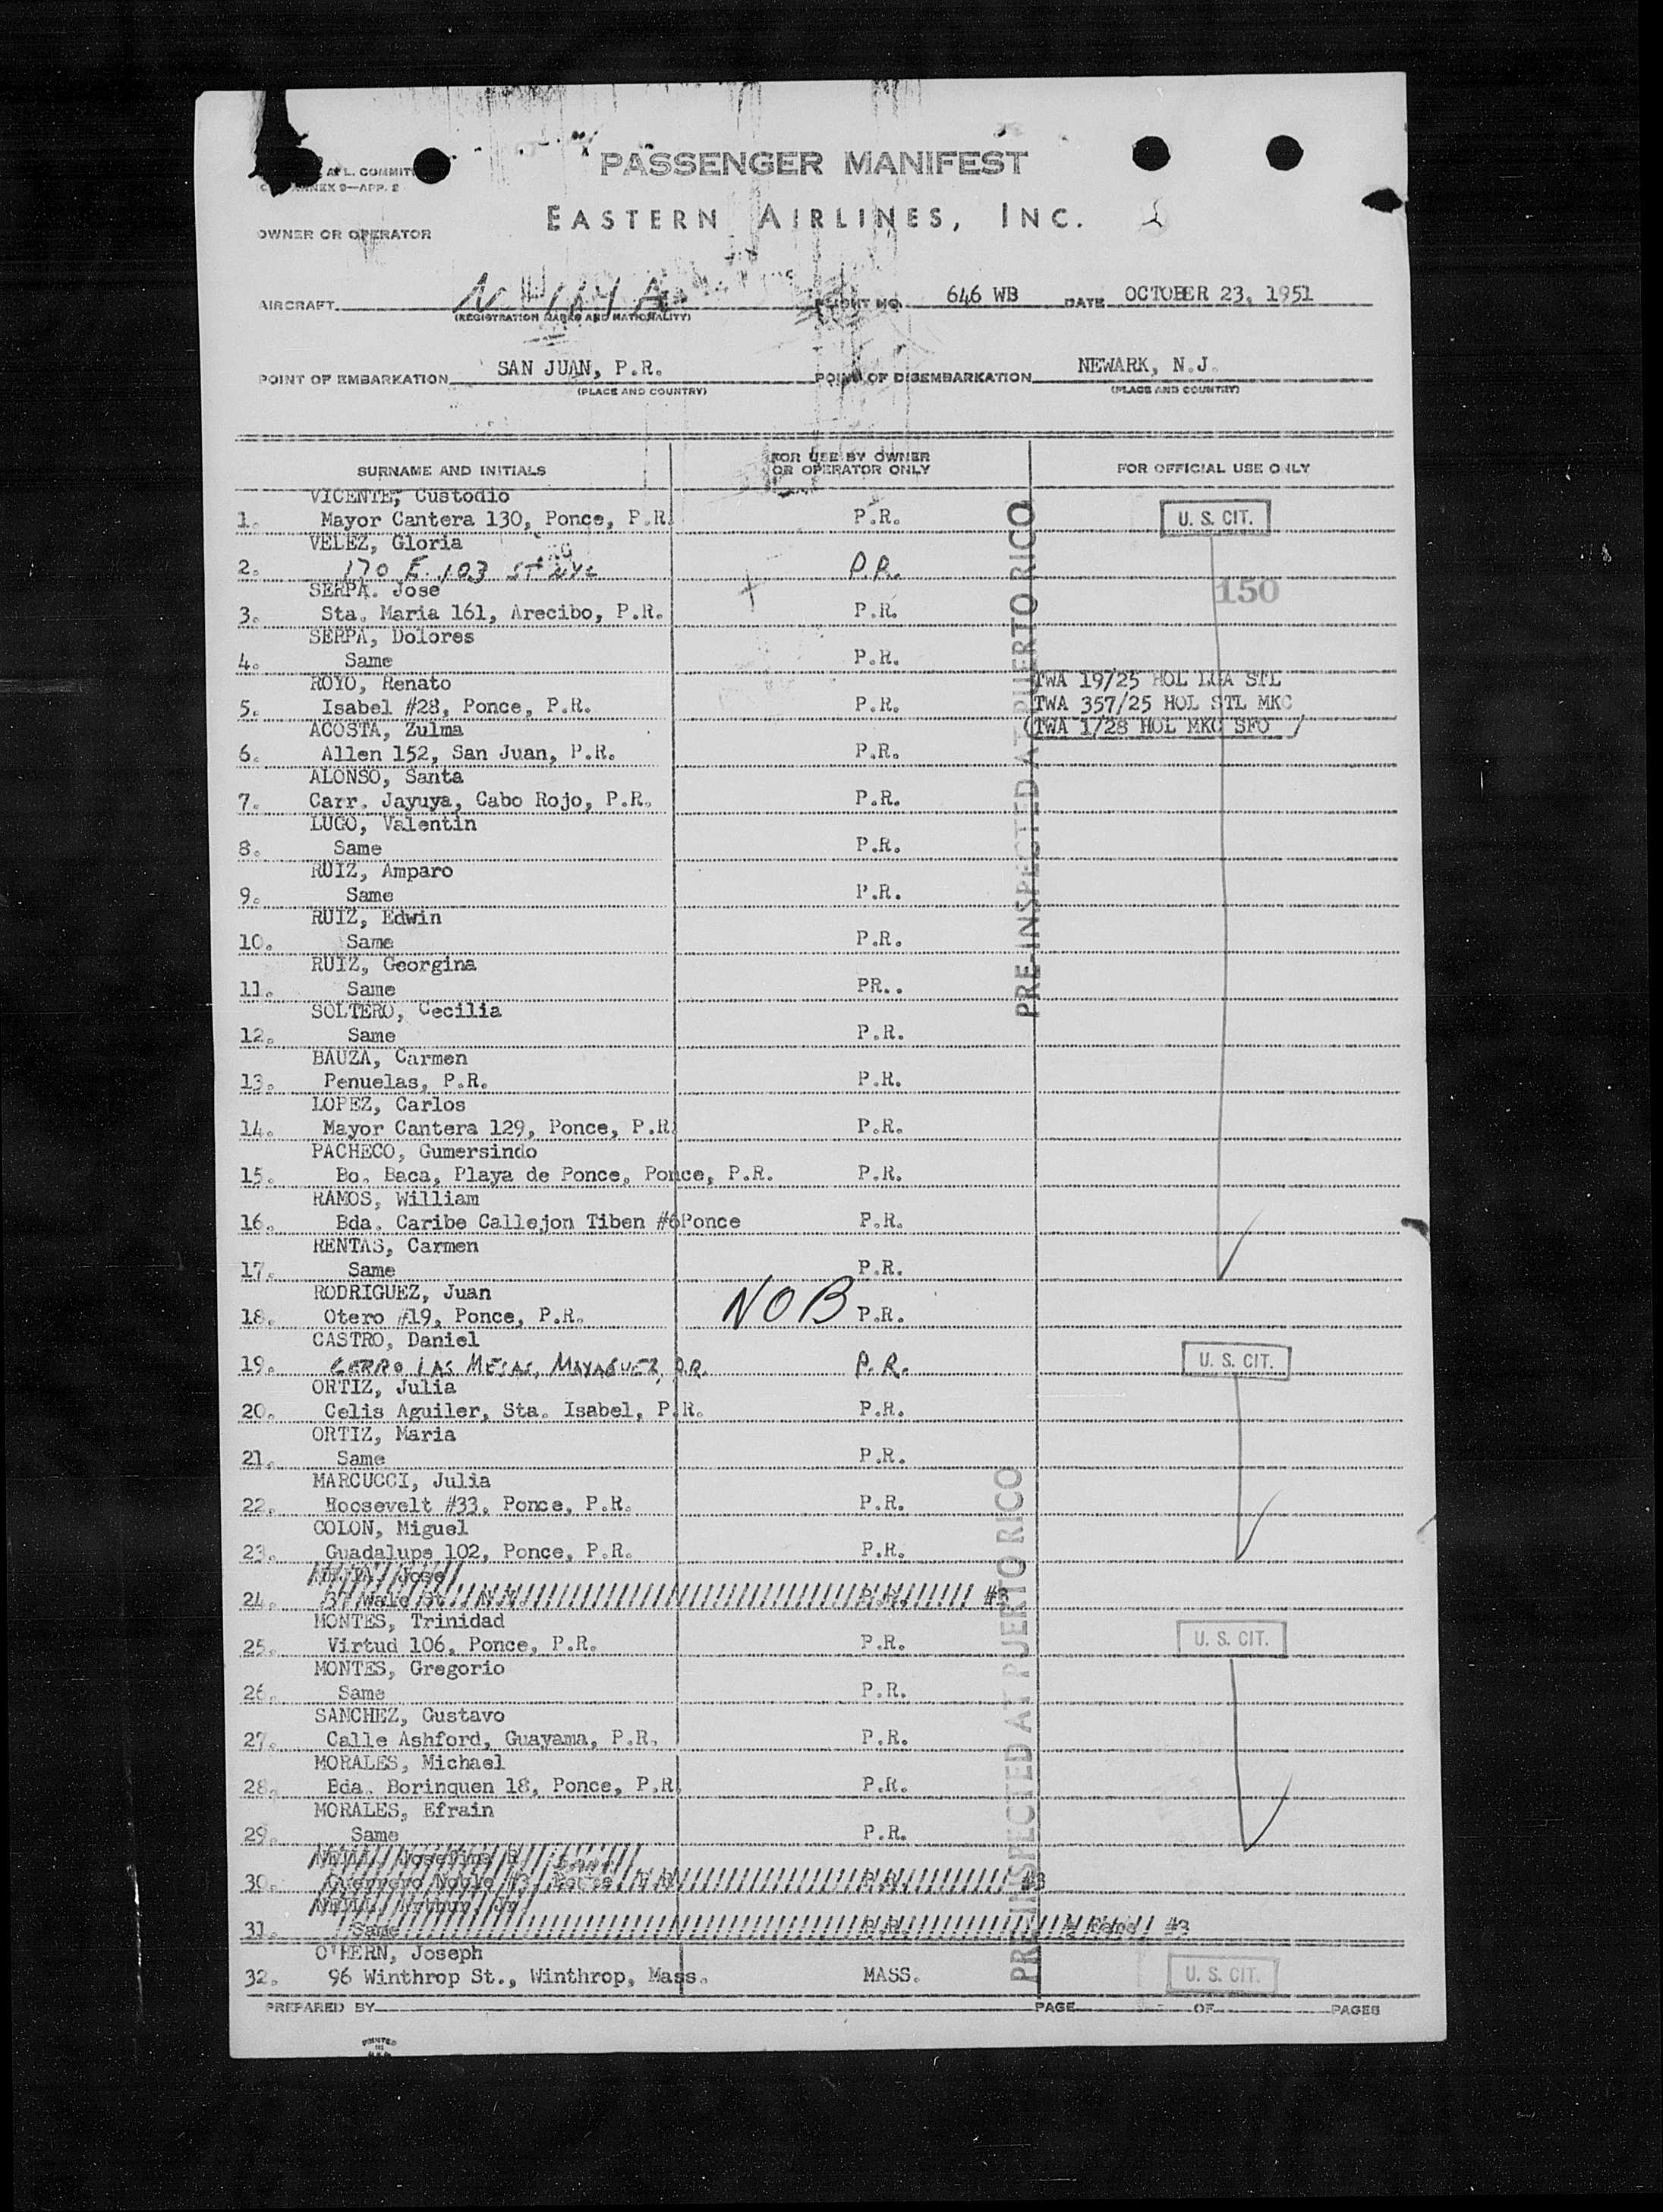 PASSENGER MANIFEST
ANNEX 9—APP. 2
EASTERN AIRLINES, INC.
OWNER OR OPERATOR
AIRCRAFT
(REGISTRATION MARKS AND NATIONALITY)
FLIGHT NO. 646 WB
DATE OCTOBER 23, 1951
POINT OF EMBARKATION SAN JUAN, P.R.
(PLACE AND COUNTRY)
POINT OF DISEMBARKATION NEWARK, N.J.
(PLACE AND COUNTRY)
SURNAME AND INITIALS
FOR USE BY OWNER
OR OPERATOR ONLY
FOR OFFICIAL USE ONLY
VICENTE, Custodio
1. Mayor Cantera 130, Ponce, P.R. P.R. U. S. CIT.
VELEZ, Gloria
2. 170 E. 103 ST NYC P.R.
150
SERPA. Jose
3. Sta. Maria 161, Arecibo, P.R. P.R.
SERPA, Dolores
4. Same P.R.
ROYO, Renato TWA 19/25 HOL LGA STL
5. Isabel #28, Ponce, P.R. P.R. TWA 357/25 HOL STL MKC
ACOSTA, Zulma (TWA 1/28 HOL MKC SFO /
6. Allen 152, San Juan, P.R. P.R.
ALONSO, Santa
7. Carr. Jayuya, Cabo Rojo, P.R. P.R.
LUGO, Valentin
8. Same P.R.
RUIZ, Amparo
9. Same P.R.
RUIZ, Edwin
10. Same P.R.
RUIZ, Georgina
11. Same PR..
SOLTERO, Cecilia
12. Same P.R.
BAUZA, Carmen
13. Penuelas, P.R. P.R.
LOPEZ, Carlos
14. Mayor Cantera 129, Ponce, P.R. P.R.
PACHECO, Gumersindo
15. Bo. Baca, Playa de Ponce, Ponce, P.R. P.R.
RAMOS, William
16. Bda. Caribe Callejon Tiben #6Ponce P.R.
RENTAS, Carmen
17. Same P.R.
RODRIGUEZ, Juan
18. Otero #19, Ponce, P.R. NOB P.R.
CASTRO, Daniel
19. CERRO LAS MESAS, MAYAGUEZ, P.R. P.R. U. S. CIT.
ORTIZ, Julia
20. Celis Aguiler, Sta. Isabel, P.R. P.R.
ORTIZ, Maria
21. Same P.R.
MARCUCCI, Julia
22. Roosevelt #33, Ponce, P.R. P.R.
COLON, Miguel
23. Guadalupe 102, Ponce, P.R. P.R.
Jose
24. #3
MONTES, Trinidad
25. Virtud 106, Ponce, P.R. P.R. U. S. CIT.
MONTES, Gregorio
26. Same P.R.
SANCHEZ, Gustavo
27. Calle Ashford, Guayama, P.R. P.R.
MORALES, Michael
28. Bda. Borinquen 18, Ponce, P.R. P.R.
MORALES, Efrain
29. Same P.R.
Josefina
30. Guerrero Noble #3
31. Same P.R. #3
O'HERN, Joseph
32. 96 Winthrop St., Winthrop, Mass. MASS. U. S. CIT.
PREPARED BY PAGE OF PAGES
PRINTED
PRE-INSPECTED AT PUERTO RICO
PRE-INSPECTED AT PUERTO RICO